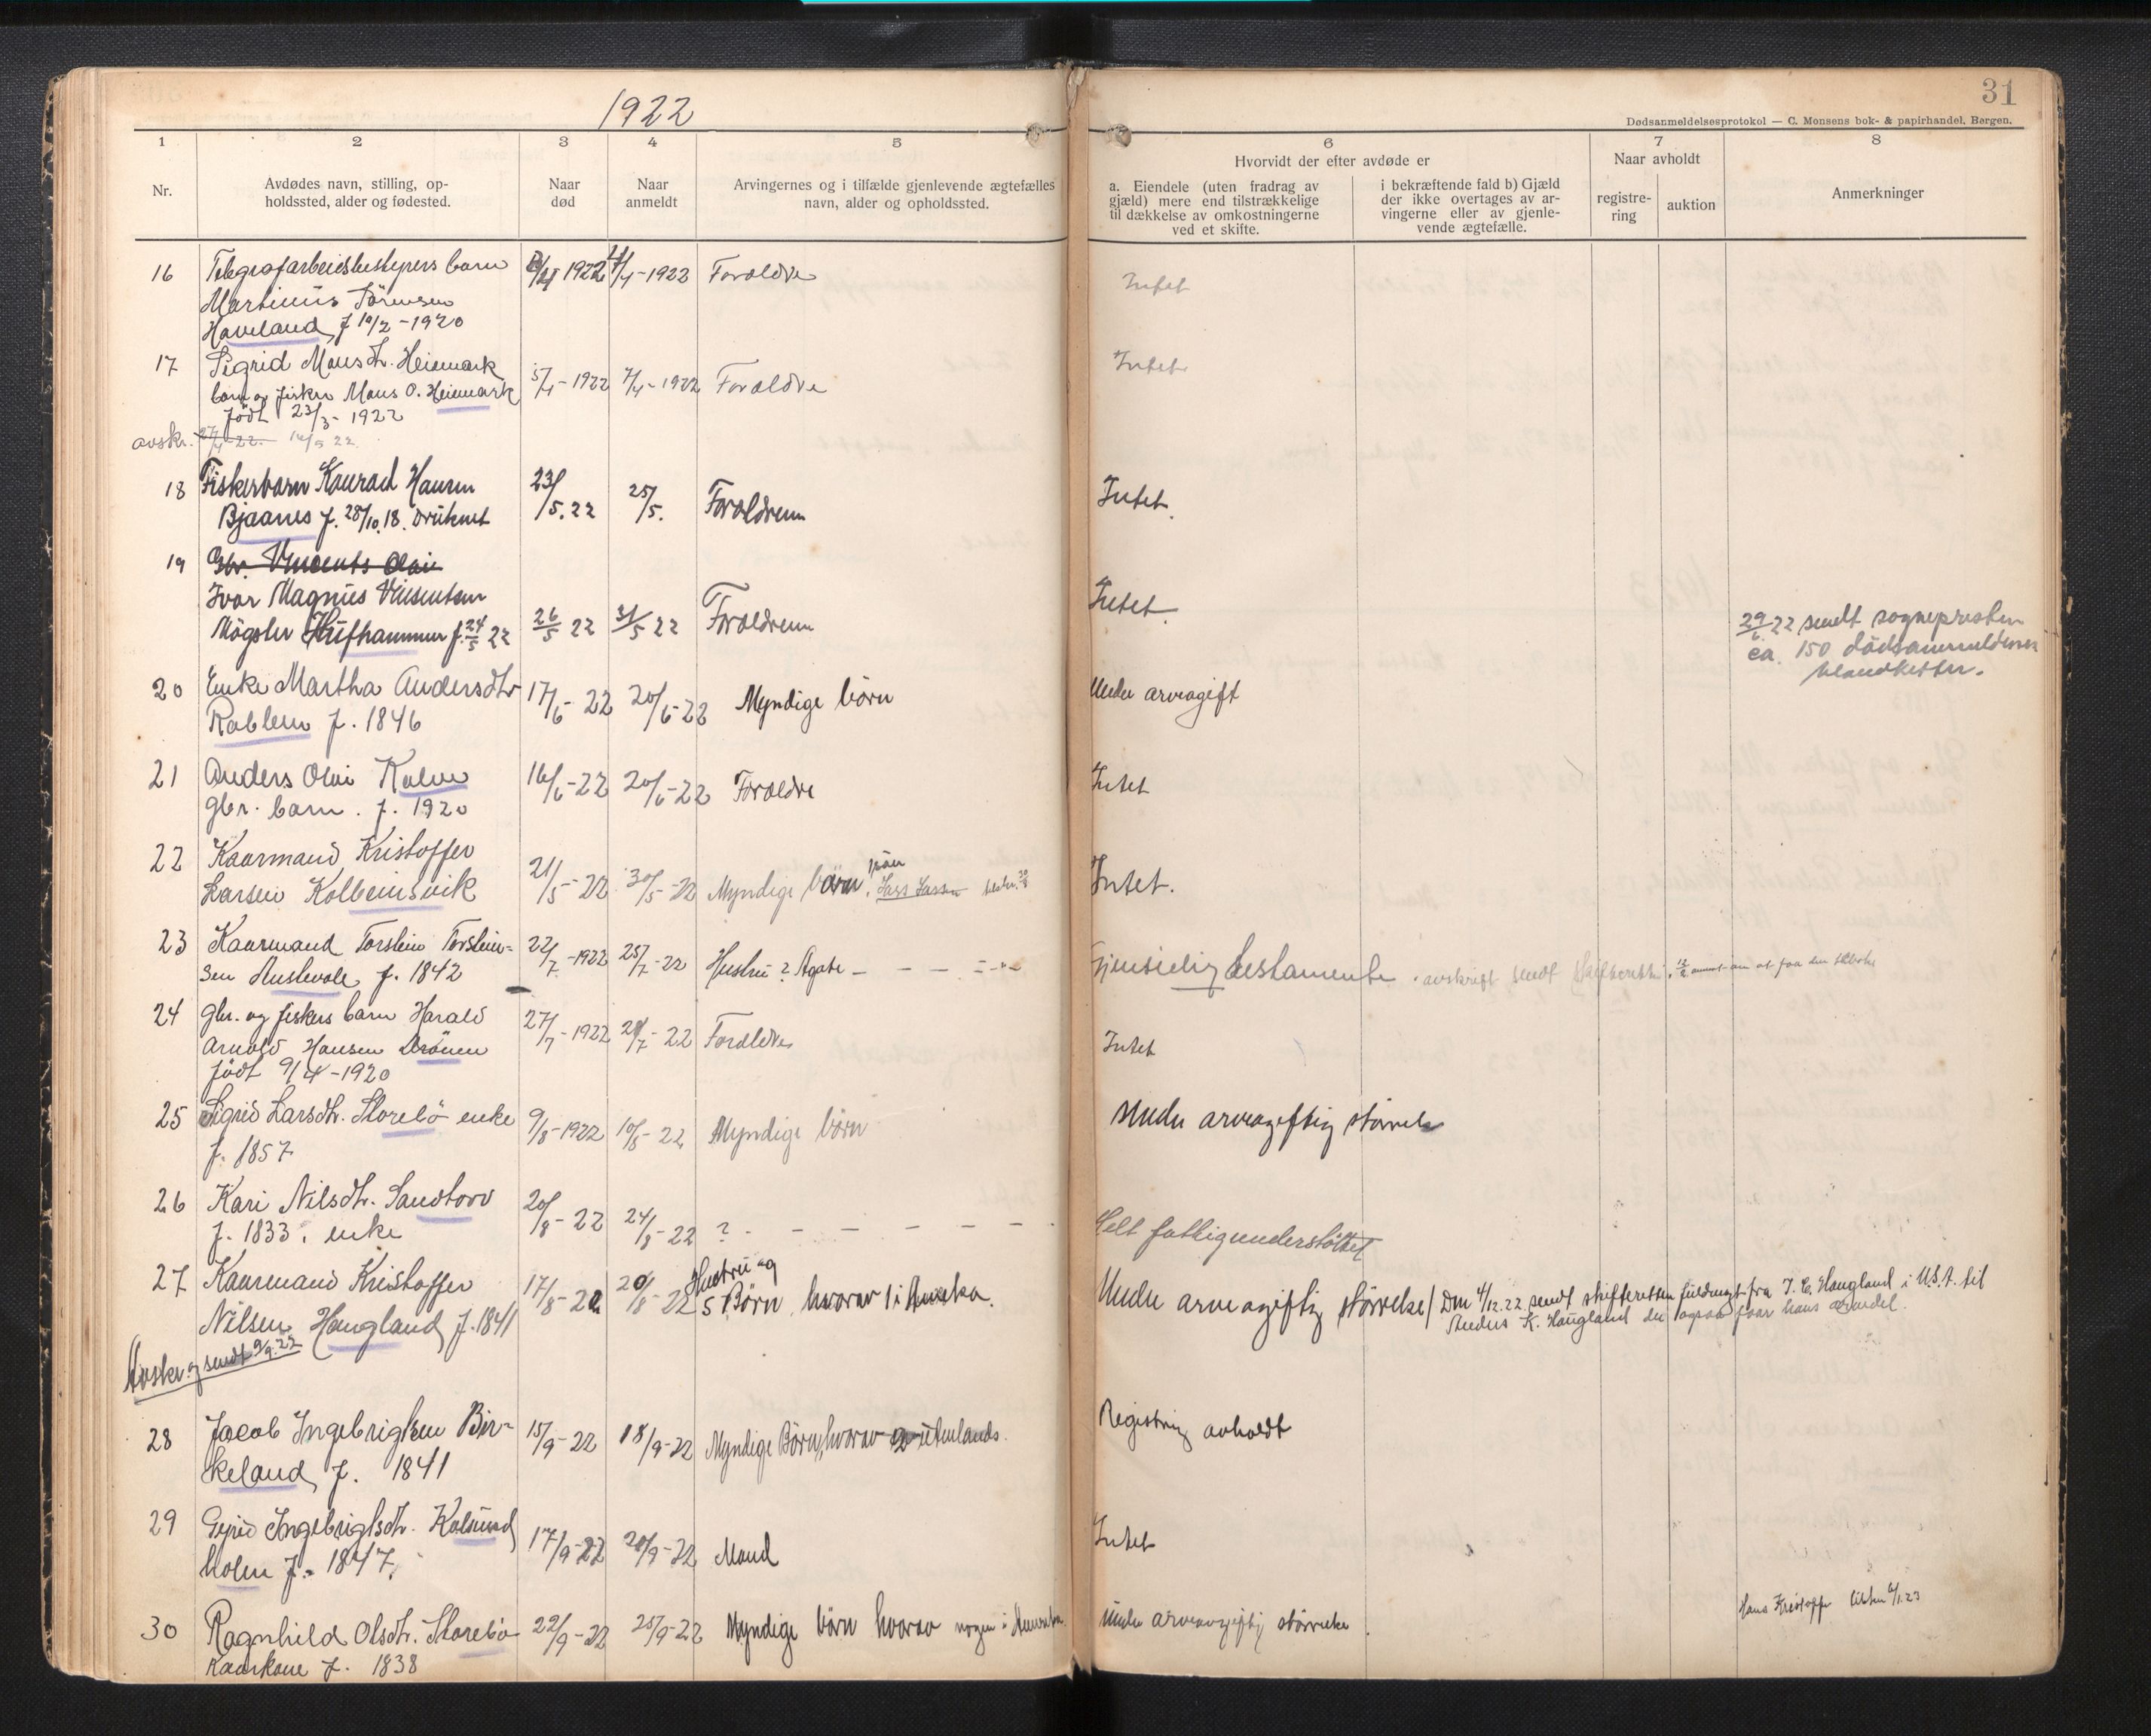 1922
31
Dødsanmeldelsesprotokol — C. Monsens bok- & papirhandel, Bergen.
1 2 3 4 5 6 7 8
Nr.
Avdødes navn, stilling, op-
holdssted, alder og fødested.
Naar
død
Naar
anmeldt
Arvingernes og i tilfælde gjenlevende ægtefælles
navn, alder og opholdssted.
Hvorvidt der efter avdøde er
a. Eiendele (uten fradrag av
gjæld) mere end tilstrækkelige
til dækkelse av omkostningerne
ved et skifte.
i bekræftende fald b) Gjæld
der ikke overtages av ar-
vingerne eller av gjenle-
vende ægtefælle.
Naar avholdt
registre-
ring
auktion
Anmerkninger
16 Telegrafarbeidsbestyrers barn 4/4-1922 Forældre Intet
Martinus Sörensen
Haveland f 10/2-1920
17 Sigrid Mons dtr. Heiemark 5/4-1922 7/4-1922 Forældre Intet
barn av fisker Mons O. Heiemark
födt 23/3-1922
avskr. 27/4-22. 16/5 22
18 Fiskerbarn Konrad Hansen 23/5.22 25/5. Forældrene Intet.
Bjaanes f. 28/10.18. Druknet
19 Gbr. Vincents Olai
Ivar Magnus Vinsentsen
Mögster Hufthammer f. 24/5 22 26/5 22 31/5 22 Forældrene Intet.
29/6.22 sendt sognepresten
ca. 150 dödsanmeldelses
blanketter.
20 Enke Martha Andersdtr 17/6-22 20/6-22 Myndige börn Under arveavgift
Rablen f. 1846
21 Anders Olai Kalve 16/6-22 20/6-22 Forældre Intet
gbr. barn. f. 1920
22 Kaarmand Kristoffer
Larsen Kolbeinsvik 21/5-22 30/5-22 Myndige börn, Intet.
23 Kaarmand Torstein Torstein- 22/7-1922 25/7-22 Hustru? Agate — — — Gjensidig testamente. avskrift sendt
sen Austevole f. 1842
24 gbr. og fiskers barn Harald 27/7-1922 29/7-22 Forældre Intet
Arnold Hansen Drönen
födt 9/4-1920
25 Sigrid Larsdtr. Storebö enke 9/8-1922 10/8-22 Myndige börn Under arveavgiftig störrelse
f. 1857
26 Kari Nilsdtr. Sandtorv 20/8-22 24/8-22 ? — — — — — Helt fattigunderstöttet
f. 1833. enke
27 Kaarmand Kristoffer 17/8-22 20/8-22 Hustru og
Nilsen Haugland f. 1841 5 Börn, hvorav 1 i Amerika. Under arveavgiftig störrelse / Den 4/12.22 sendt skifteretten fuldmagt fra J. C. Haugland i U.S.A. til
Anders K. Haugland der ogsaa faar hans arvedel.
Avskr. og sendt 9/9.22
28 Jacob Ingebrigtsen Bir- 15/9-22 18/9-22 Myndige Börn, hvorav 2 utenlands. Registring avholdt
keland f. 1841
29 Gyrid Ingebrigtsdtr. Kalsund 17/9-22 20/9-22 Mand Intet
holm f. 1847.
30 Ragnhild Olsdtr. Storebö 22/9-22 25/9-22 Myndige börn hvorav nogen i Amerika Under arveavgiftig störrelse
Kaarkone f. 1838
Hans Kristoffer